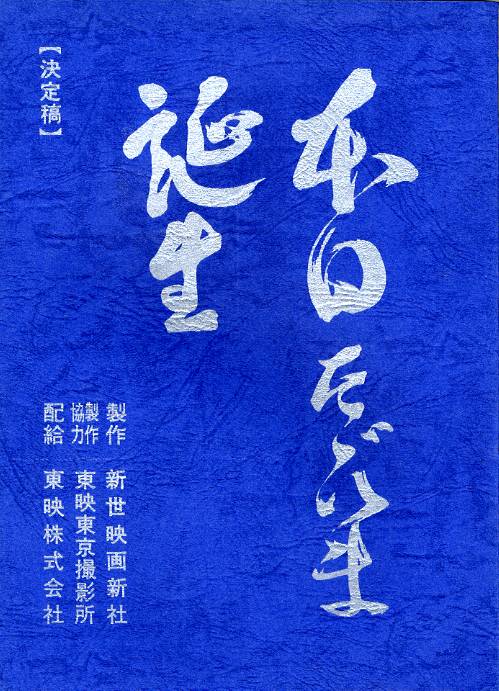 本日たゞいま
誕生
【決定稿】
製作 新世映画新社
製作協力 東映東京撮影所
配給 東映株式会社